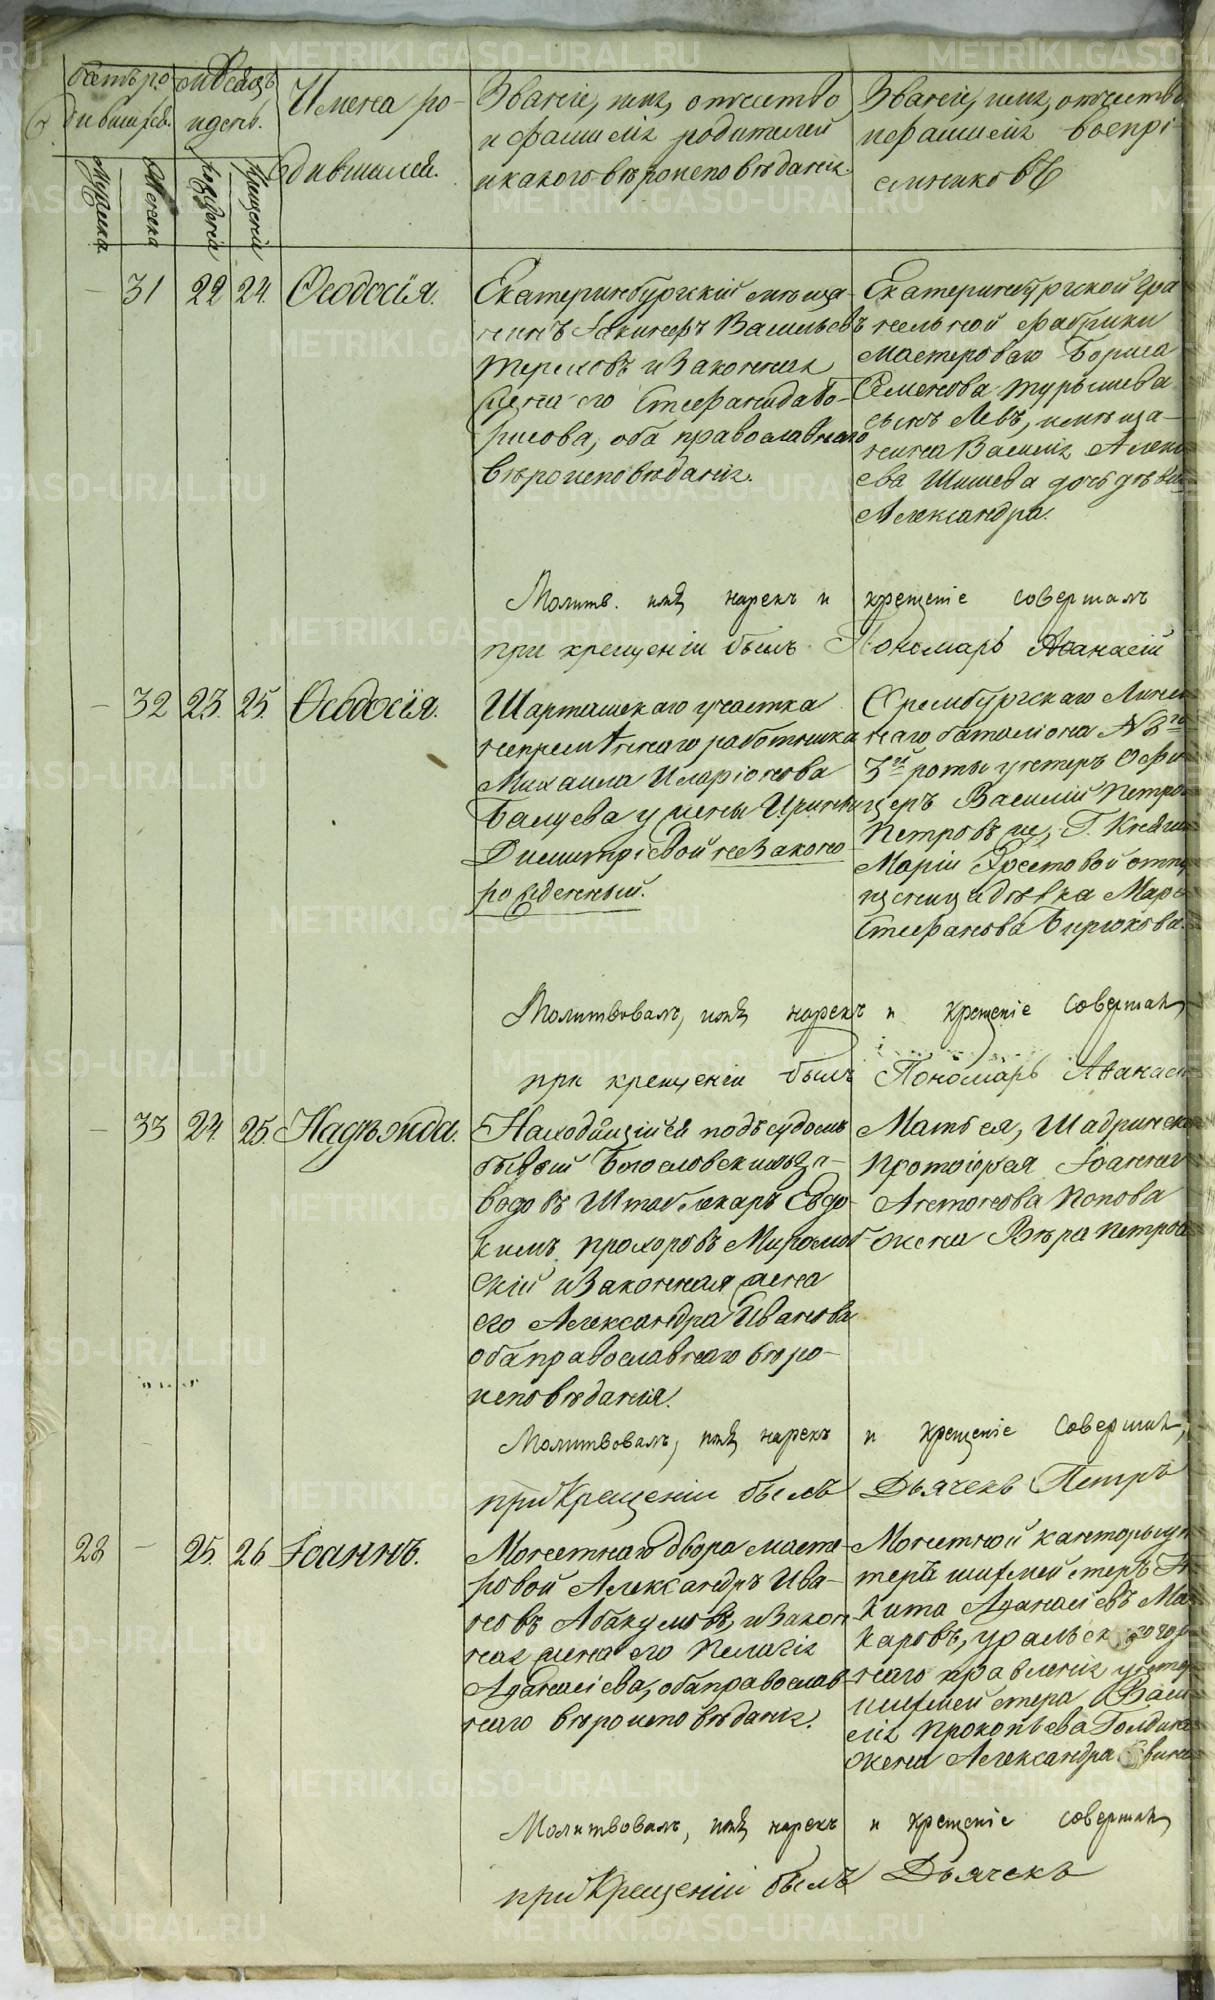 Счетъ ро-
дившихся.
Мужеска
Женска
Мѣсяцъ
и день.
рожденія
крещенія
Имена ро-
дившихся.
Званіе, имя, отчество
и фамилія родителей
и какого вѣроисповѣданія.
Званіе, имя, отчество
и фамилія воспрі-
емниковъ
— 31 22 24. Ѳеодосія.
Екатеринбургскій мѣща-
нинъ Іакинфъ Васильевъ
Тереховъ и законная
жена его Стефанида Бо-
рисова, оба православнаго
вѣроисповѣданія.
Екатеринбургской Гра-
нильной фабрики
мастероваго Бориса
Семенова Турышева
сынъ Левъ, и мѣща-
нина Василія Алекс
ева Шишева дочь дѣвица
Александра.
Молитв. имя нарекъ и крещеніе совершалъ
при крещеніи былъ Пономарь Аѳанасій
— 32 23. 25. Ѳеодосія.
Шарташскаго участка
непремѣннаго работника
Михаила Иларіонова
Балуева у жены Ирины
Димитріевой незаконо-
рожденный.
Оренбургскаго Линей
наго баталіона № 3го
3й роты унтеръ Офи-
церъ Василій Петровъ
Петровъ и, Г. Княгини
Маріи Хрестовой отпу
щеница дѣвка Марѳа
Стефанова Бирюкова.
Молитвовалъ, имя нарекъ и крещеніе совершал
при крещеніи былъ Пономарь Аѳанасій
— 33 24. 25. Надѣжда.
Находящійся подъ судомъ
бывый Богословскихъ За-
водовъ Штаблекарь Евдо-
кимъ Прохоровъ Миролюб-
скій и законная жена
его Александра Иванова
оба православнаго вѣро-
исповѣданія.
Мать ея, Шадринска
Протоіерея Іоанна
Антонова Попова
жена Вѣра Петрова
Молитвовалъ, имя нарекъ и крещеніе совершил,
при Крещеніи былъ Дьячекъ Петръ
22 — 25. 26 Іоаннъ.
Монетнаго двора масте-
ровой Александръ Ива-
новъ Абакумовъ, и закон-
ная жена его Пелагія
Аѳанасіева, оба православ-
наго вѣроисповѣданія.
Монетной канторы ун-
теръ шихтмейстеръ Ни-
кита Аѳанасіевъ Ма-
каровъ, уральскаго гор-
наго правленія унтеръ
шихтмейстера Васи-
лія Прокопьева Голдина
жена Александра
Молитвовалъ, имя нарекъ и крещеніе совершал
при Крещеніи былъ Дьячекъ
METRIKI.GASO-URAL.RU